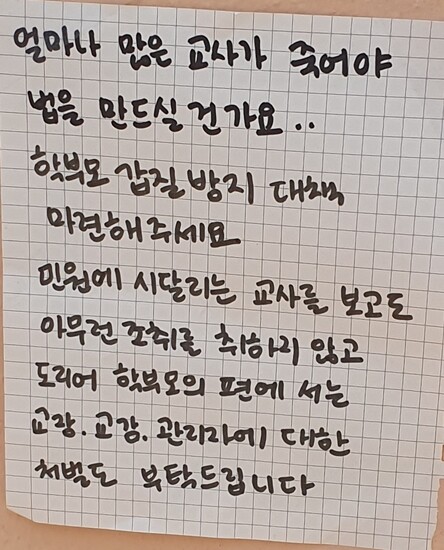 얼마나 많은 교사가 죽어야
법을 만드실 건가요..
학부모 갑질 방지 대책
마련해주세요
민원에 시달리는 교사를 보고도
아무런 조취를 취하지 않고
도리어 학부모의 편에 서는
교장.교감.관리자에 대한
처벌도 부탁드립니다